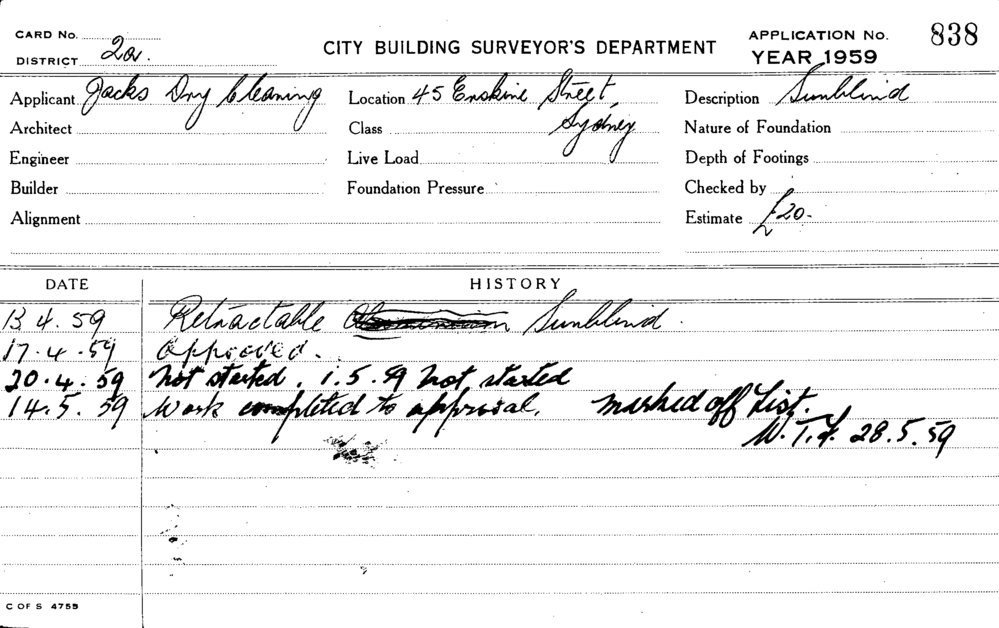 CARD No.
DISTRICT 2a.
CITY BUILDING SURVEYOR'S DEPARTMENT
APPLICATION No. 838
YEAR 1959
Applicant Jacks Dry Cleaning
Location 45 Erskine Street, Sydney
Description Sunblind
Architect
Class
Nature of Foundation
Engineer
Live Load
Depth of Footings
Builder
Foundation Pressure
Checked by
Alignment
Estimate £20-
DATE HISTORY
13 4. 59 Retractable Sunblind.
17. 4. 59 Approved.
20. 4. 59 Not started. 1. 5. 59 Not started
14. 5. 59 Work completed to approval. Marked off List.
28. 5. 59
C OF S 4755